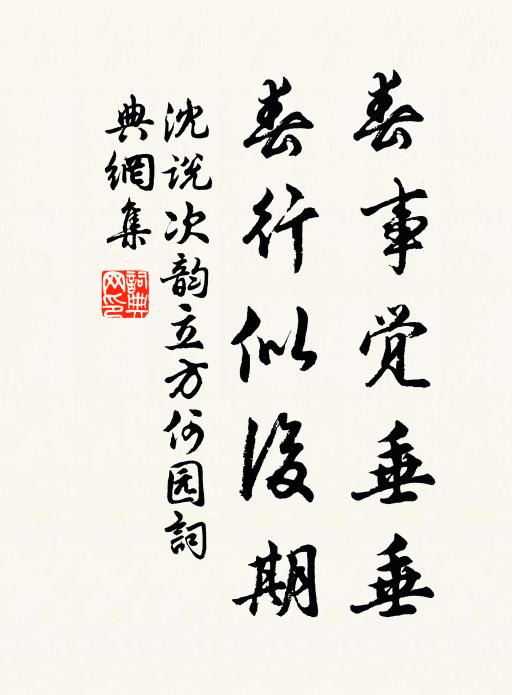 春事觉垂垂
春行似後期
沈说次韵立方何园詞
典網集
詞典网印